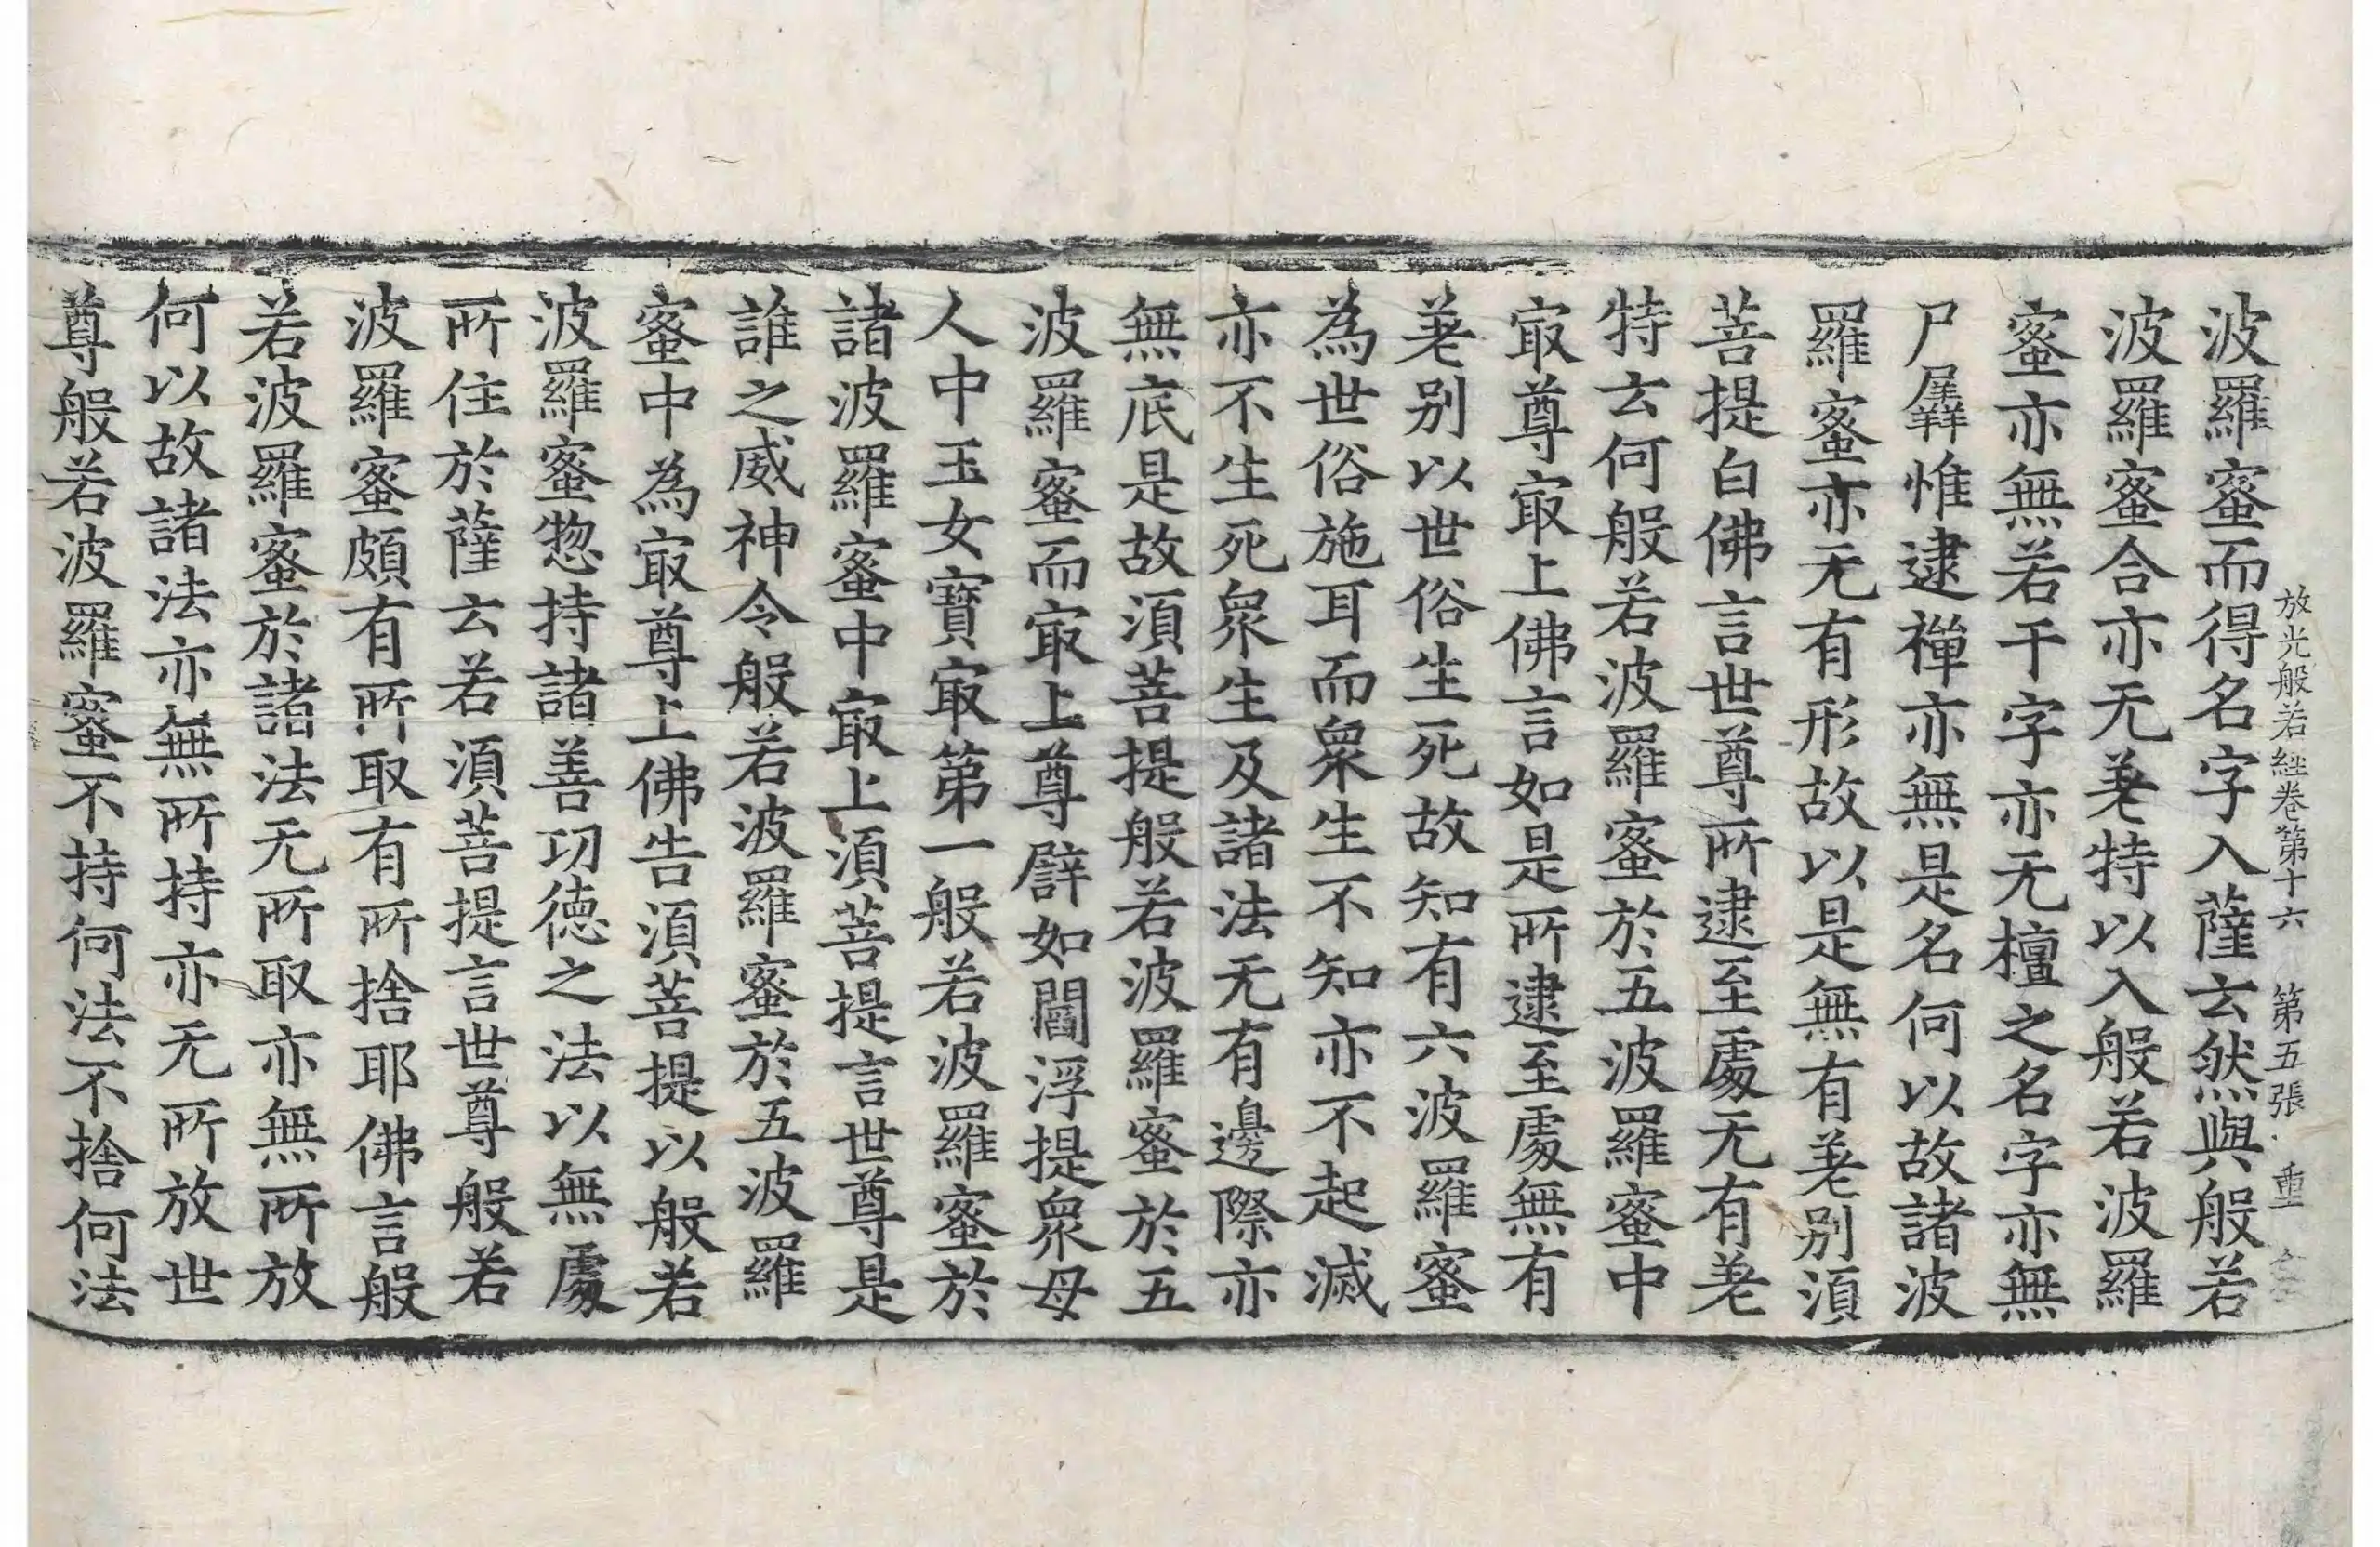 放光般若經卷第十六 第五張 重
波羅蜜而得名字入薩云然與般若
波羅蜜合亦无差特以入般若波羅
蜜亦無若干字亦无檀之名字亦無
尸羼惟逮禪亦無是名何以故諸波
羅蜜亦无有形故以是無有差别須
菩提白佛言世尊所逮至處无有差
特云何般若波羅蜜於五波羅蜜中
㝡尊㝡上佛言如是所逮至處無有
差别以世俗生死故知有六波羅蜜
為世俗施耳而衆生不知亦不起滅
亦不生死衆生生及諸法无有邊際亦
無底是故須菩提般若波羅蜜於五
波羅蜜而㝡上尊譬如閻浮提衆母
人中玉女寶㝡第一般若波羅蜜於
諸波羅蜜中㝡上須菩提言世尊是
誰之威神令般若波羅蜜於五波羅
蜜中為㝡尊上佛告須菩提以般若
波羅蜜惣持諸善功德之法以無處
所住於薩云若須菩提言世尊般若
波羅蜜頗有所取有所捨耶佛言般
若波羅蜜於諸法无所取亦無所放
何以故諸法亦無所持亦无所放世
尊般若波羅蜜不持何法不捨何法